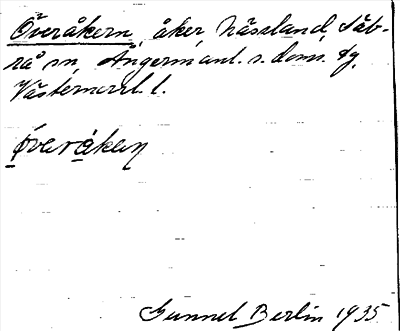 Överåkern, åker, Nässland, Säb-
rå sn, Ångermanl. s. doms. dg.
Västernorrl. l.
øveråkeɳ
Gunnel Berlin 1935